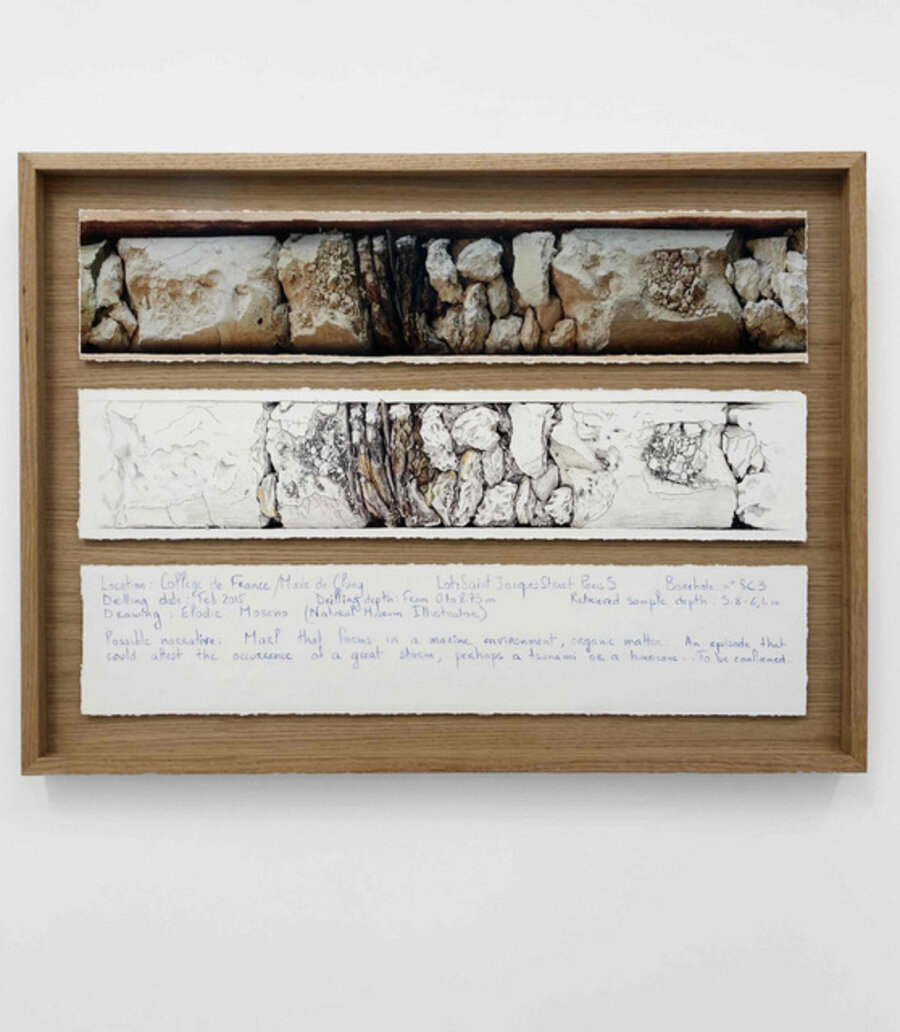 Location : Collège de France / Musée de Cluny Lots Saint Jacques Street Paris 5 Borehole n° SC3
Drilling date : Feb 2015 Drilling depth : From 0 to 8.75 m Retrieved sample depth : 5.8-6,6 m
Drawing : Elodie Moreno (Natural Museum Illustrator)
Possible narrative : Marl that forms in a marine environment, organic matter. An episode that
could attest the occurrence of a great storm, perhaps a tsunami or a hurricane... To be confirmed.